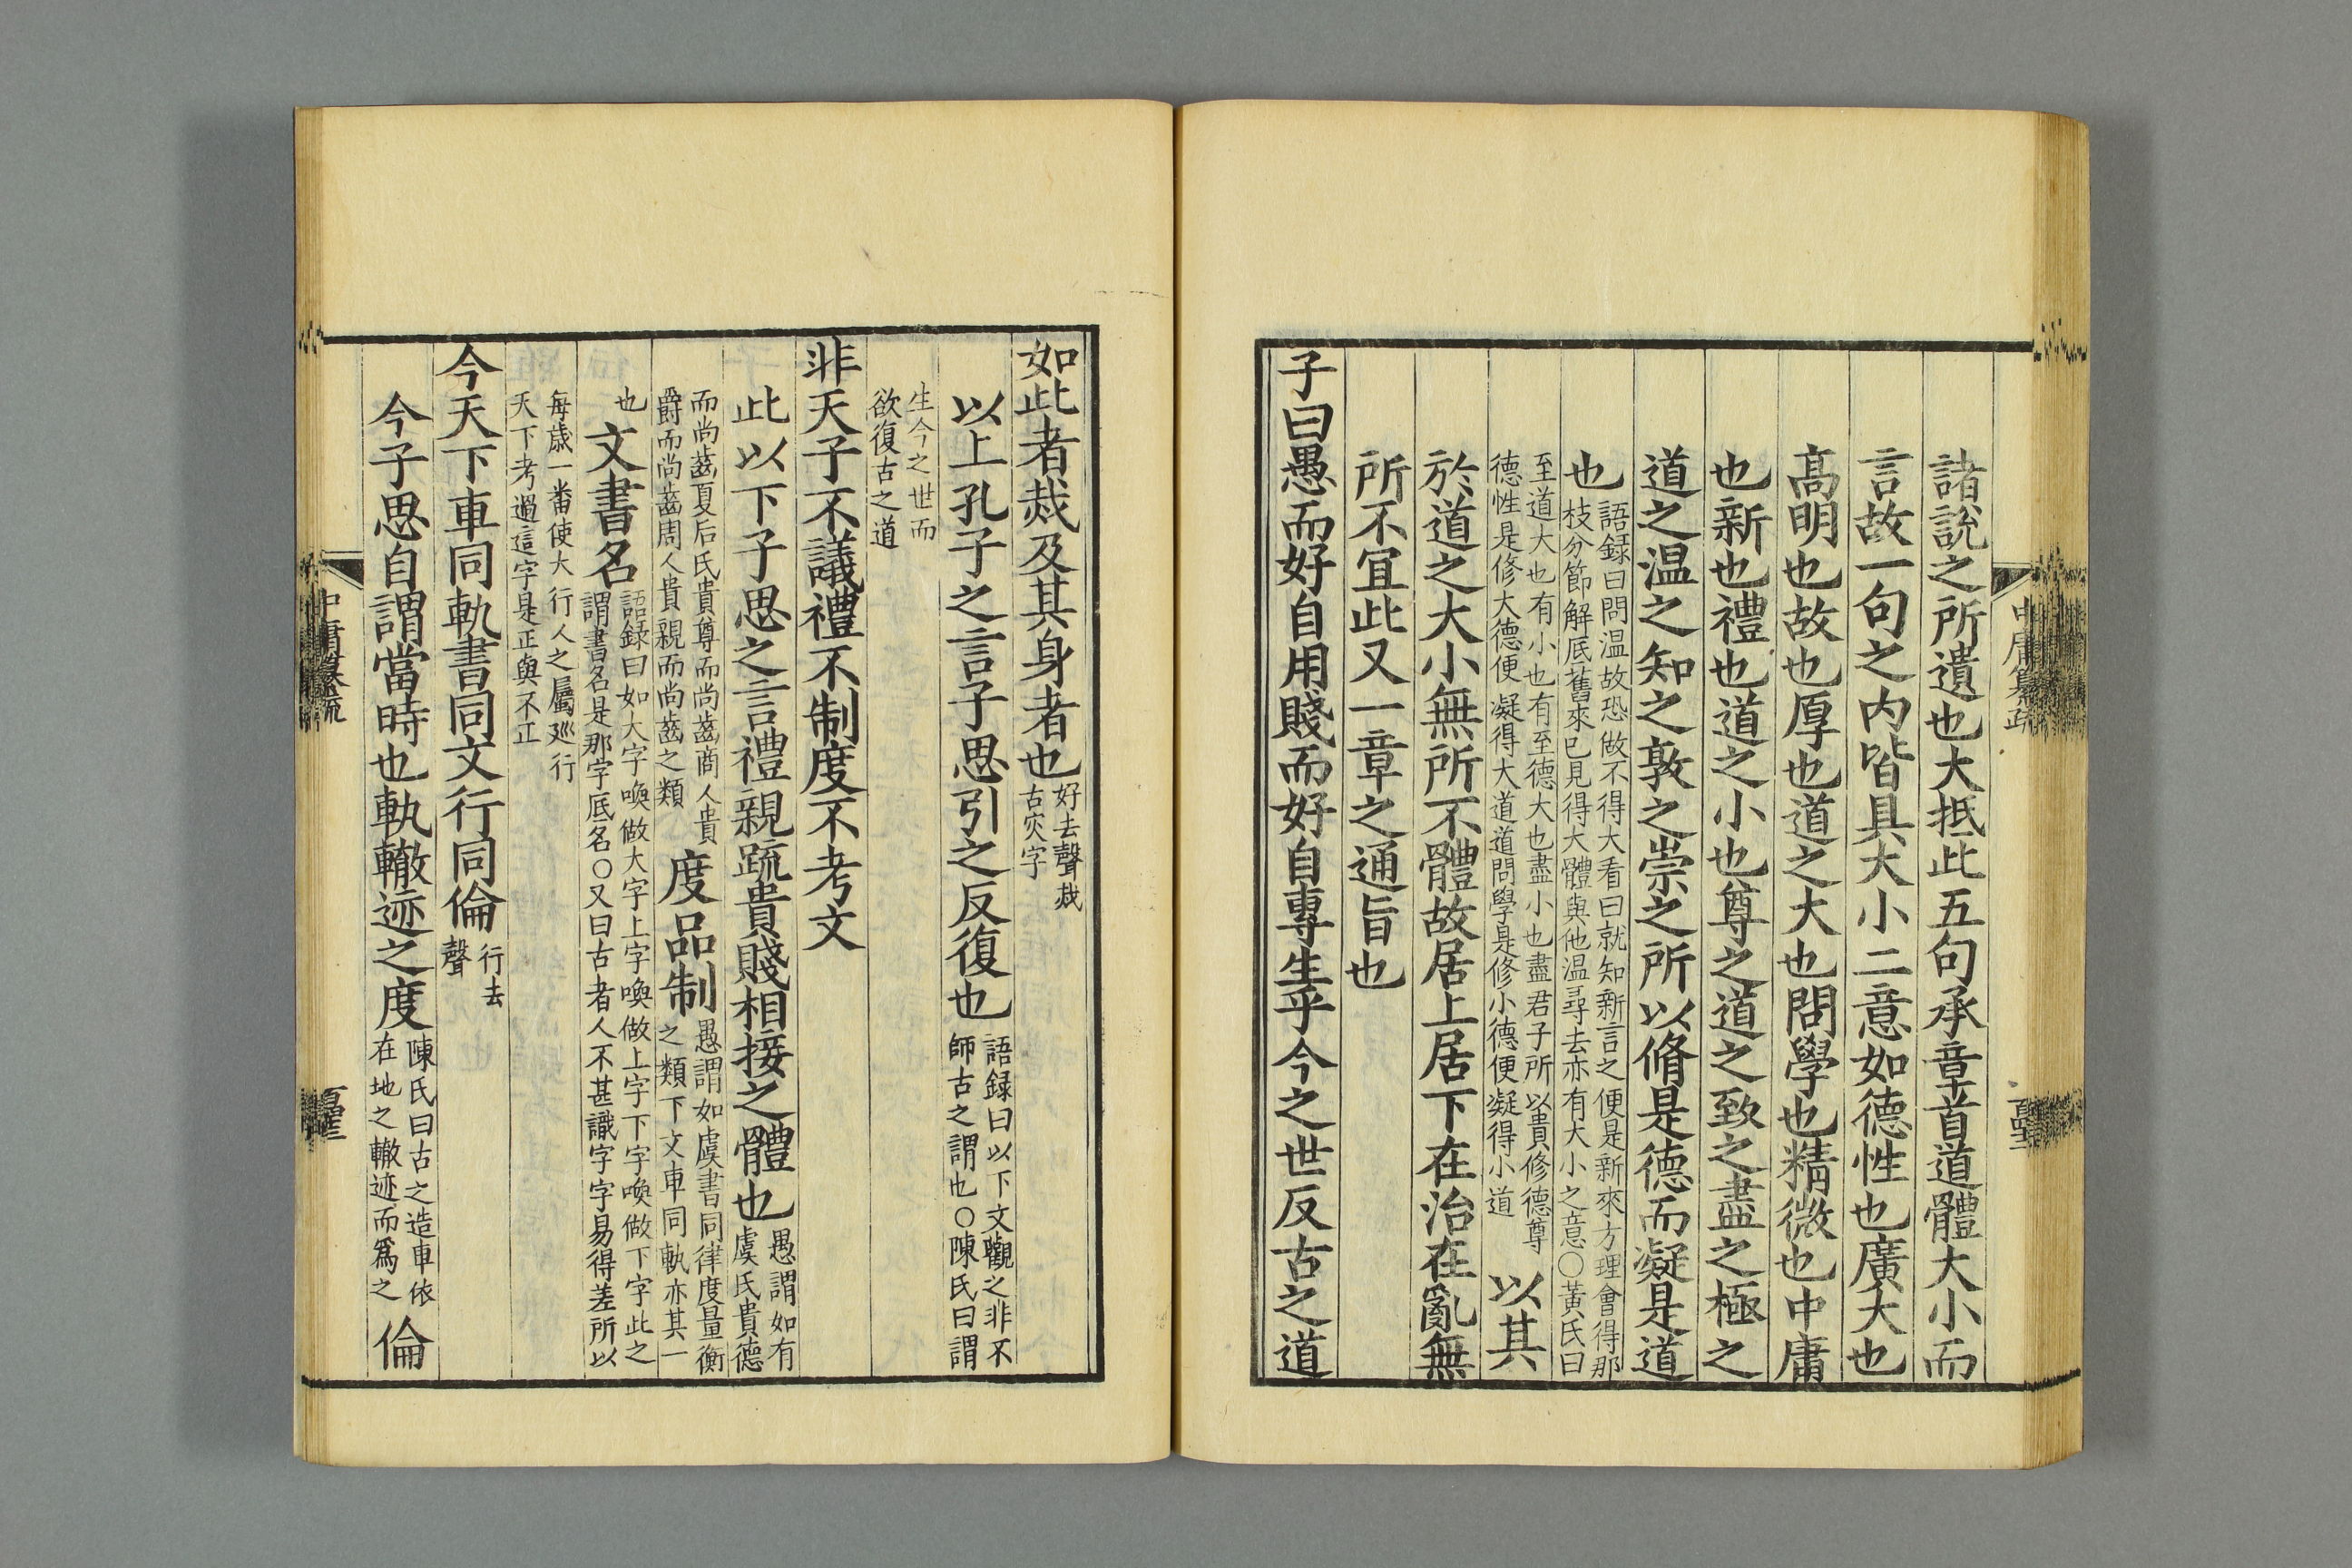 諸說之所遺也大抵此五句承章首道體大小而
言故一句之内皆具大小二意如德性也廣大也
髙明也故也厚也道之大也問學也精微也中庸
也新也禮也道之小也尊之道之致之盡之極之
道之温之知之敦之崇之所以脩是德而凝是道
也語録曰問温故恐做不得大看曰就知新言之便是新來方理會得那
枝分節解底舊來已見得大體與他温尋去亦有大小之意〇黄氏曰
至道大也有小也有至德大也盡小也盡君子所以貴修德尊
德性是修大德便凝得大道道問學是修小德便凝得小道以其
於道之大小無所不體故居上居下在治在亂無
所不宜此又一章之通旨也
子曰愚而好自用賤而好自專生乎今之世反古之道
中庸纂疏
如此者烖及其身者也好去聲烖
古灾字
以上孔子之言子思引之反復也語録曰以下文觀之非不
師古之謂也〇陳氏曰謂
生今之世而
欲復古之道
非天子不議禮不制度不考文
此以下子思之言禮親疏貴賤相接之體也愚謂如有
虞氏貴德
而尚齒夏后氏貴尊而尚齒商人貴
爵而尚齒周人貴親而尚齒之類度品制愚謂如虞書同律度量衡
之類下文車同軌亦其一
也文書名語録曰如大字喚做大字上字喚做上字下字喚做下字此之
謂書名是那字底名〇又曰古者人不甚識字字易得差所以
每歲一番使大行人之屬廵行
天下考過這字是正與不正
今天下車同軌書同文行同倫行去
聲
今子思自謂當時也軌轍迹之度陳氏曰古之造車依
在地之轍迹而爲之倫
中庸纂疏